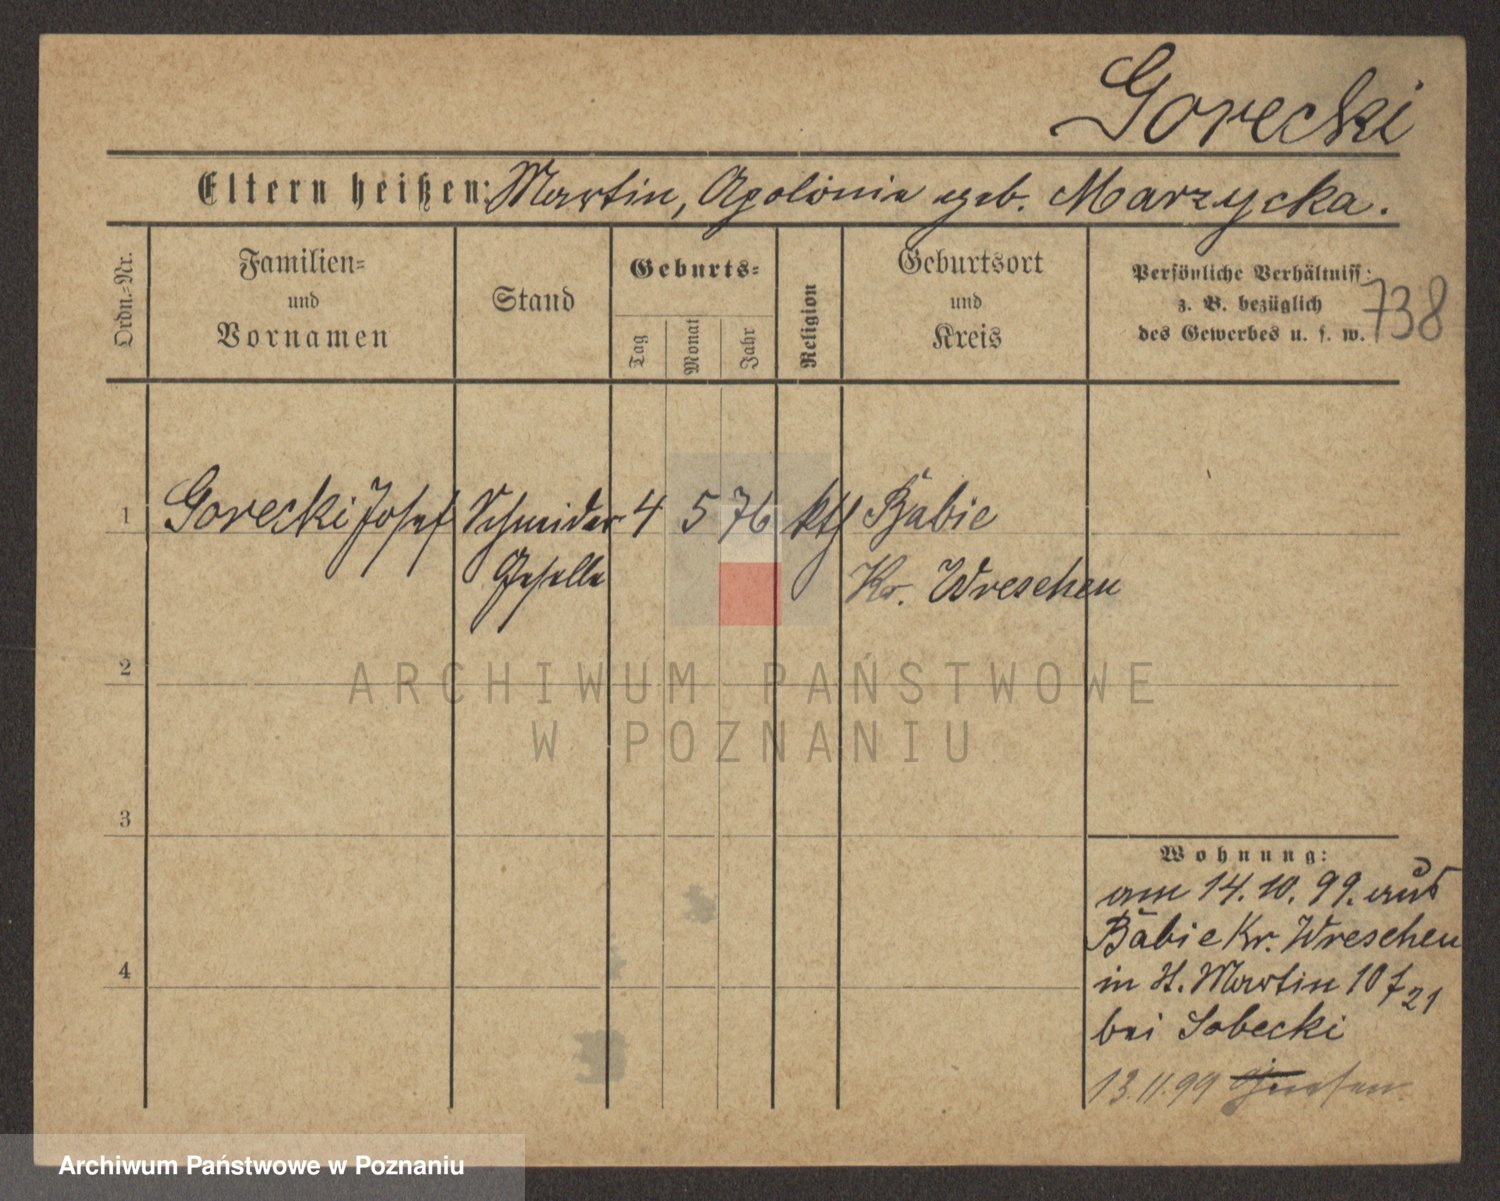 Gorecki
Eltern heißen: Martin, Apolonia geb. Marzycka.
Ordn.-Nr.
Familien-
und
Vornamen
Stand
Geburts-
Tag
Monat
Jahr
Religion
Geburtsort
und
Kreis
Persönliche Verhältniss:
z. B. bezüglich
des Gewerbes u. s. w.
738
1 Gorecki Josef Schneider 4 5 76 kth Babie
Geselle Kr. Wreschen
2
3
4
Wohnung:
am 14.10.99. aus
Babie Kr. Wreschen
in St. Martin 10 f 21
bei Sobecki
13.11.99 Gnesen
ARCHIWUM PAŃSTWOWE
W POZNANIU
Archiwum Państwowe w Poznaniu